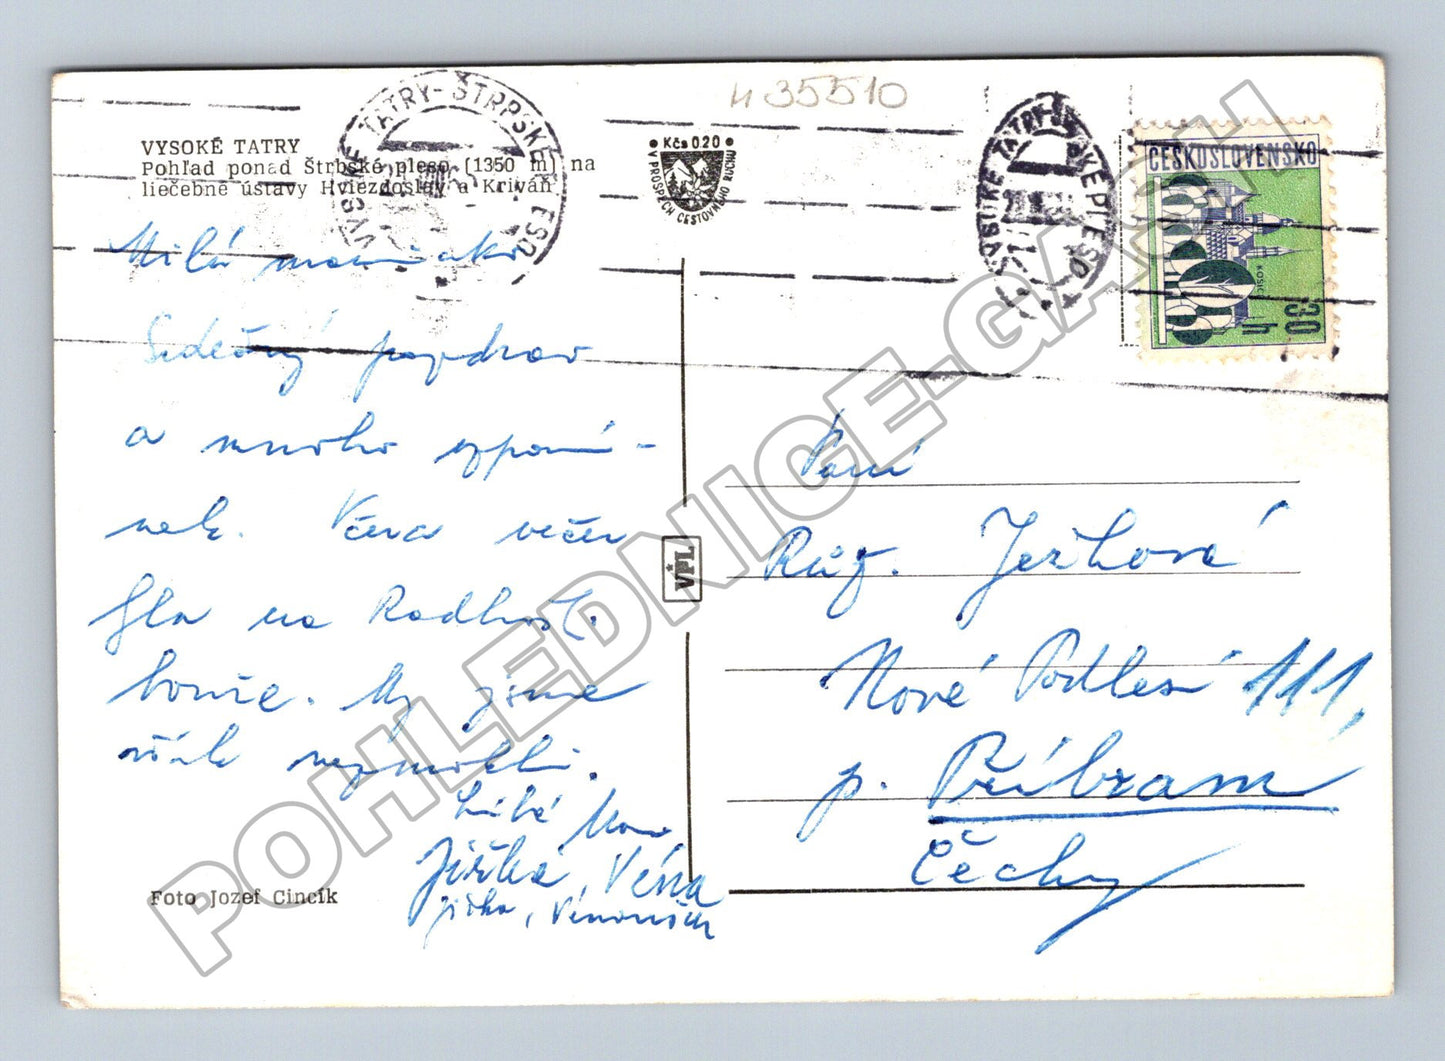 435510
VYSOKÉ TATRY
Pohľad ponad Štrbské pleso (1350 m) na
liečebné ústavy Hviezdoslav a Kriváň
VYSOKÉ TATRY-ŠTRBSKÉ PLESO
Kčs 0.20
V PROSPECH CESTOVNÉHO RUCHU
VYSOKÉ TATRY-ŠTRBSKÉ PLESO
ČESKOSLOVENSKO
KOŠICE
30 h
Milá maminko
Srdečný pozdrav
a mnoho vzpomí-
nek. Včera večer
byla na Radhošť.
bouře. My jsme
však nezmokli.
Jiřka, Věra
Jirka,
Foto Jozef Cincík
VPL
Paní
Růž. Ježková
Nové Podlesí 111,
p. Příbram
Čechy
POHLEDNICE-GASH